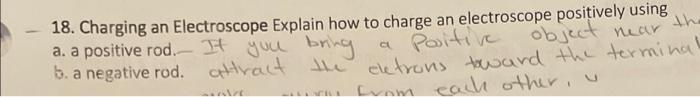 18. Charging an Electroscope Explain how to charge an electroscope positively using
a. a positive rod. — It you bring a Positive object near the
b. a negative rod. attract the eletrons toward the terminal
from each other, u